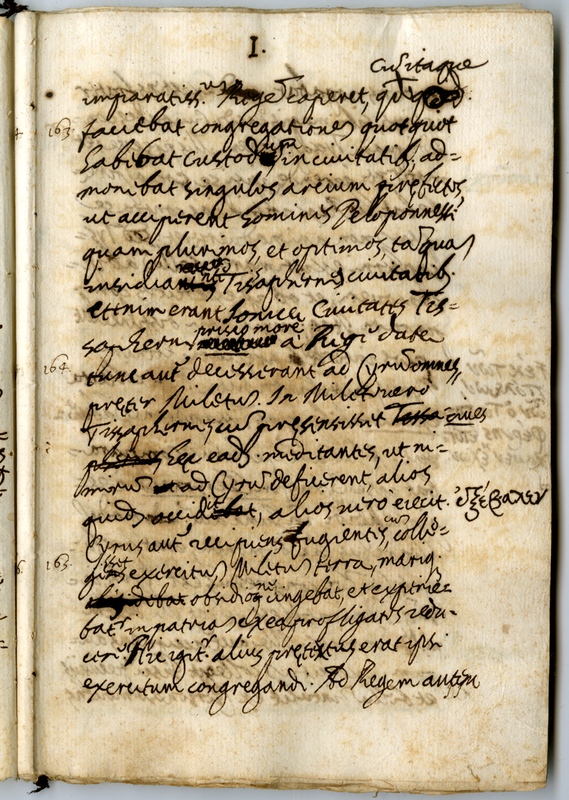 I.
Cusitaque
imparatiss. Regē caperet,
163. faciebat congregationes quotquot
habebat custod in civitatib. ad=
monebat singulos arcium prefectos
ut acciperent homines Peloponnesi
quam plurimos, et optimos, taquas
insidian Tissaphernes civitatib.
etenim erant Ionicæ Civitates Tis=
sapherni prisco more a Rege datæ
164. tunc aut. decisserant ad Cyrum omnes
preter Miletū. In Mileto vero
Tissaphernes cū presensisset cives
hec eadē meditantes, ut ni=
mirū ad Cyrū deficerent, alios
quidē occidit, alios vero eiecit. ἐξέβαλεν
Cyrus aut. recipiens fugientes, colle=
165. exercitus Miletū terra, mariq.
obsidione ungebat, et experie=
bat in patriā exea profligatos redu=
cere. Hic igit. alius pretextus erat ipsi
exercitum congregandi. Ad Regem autem